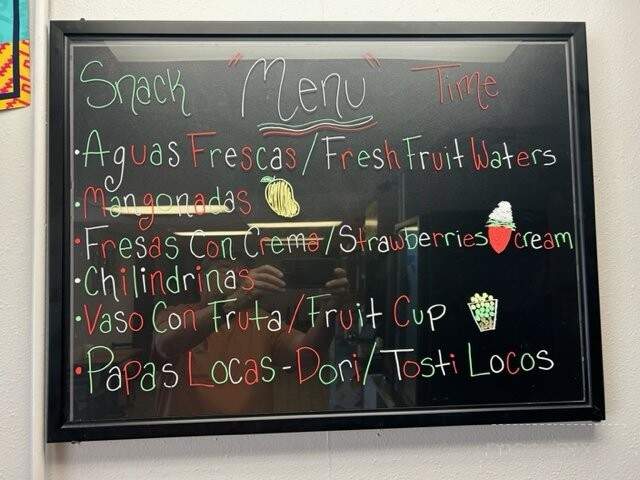 Snack "Menu" Time
· Aguas Frescas / Fresh Fruit Waters
· Mangonadas
· Fresas Con Crema / Strawberries cream
· Chilindrinas
· Vaso Con Fruta / Fruit Cup
· Papas Locas - Dori / Tosti Locos